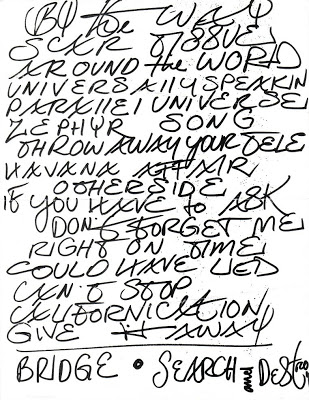 BY the WAY
SCAR TISSUE
AROUND the WORLD
UNIVERSALLY SPEAKIN
PARALLEL UNIVERSE
ZEPHYR SONG
THROW AWAY YOUR TELE
HAVANA AFFAIR
OTHERSIDE
IF YOU HAVE to ASK
DON'T FORGET ME
RIGHT ON TIME
COULD HAVE LIED
CAN'T STOP
CALIFORNICATION
GIVE it AWAY
BRIDGE • SEARCH and DESTRO